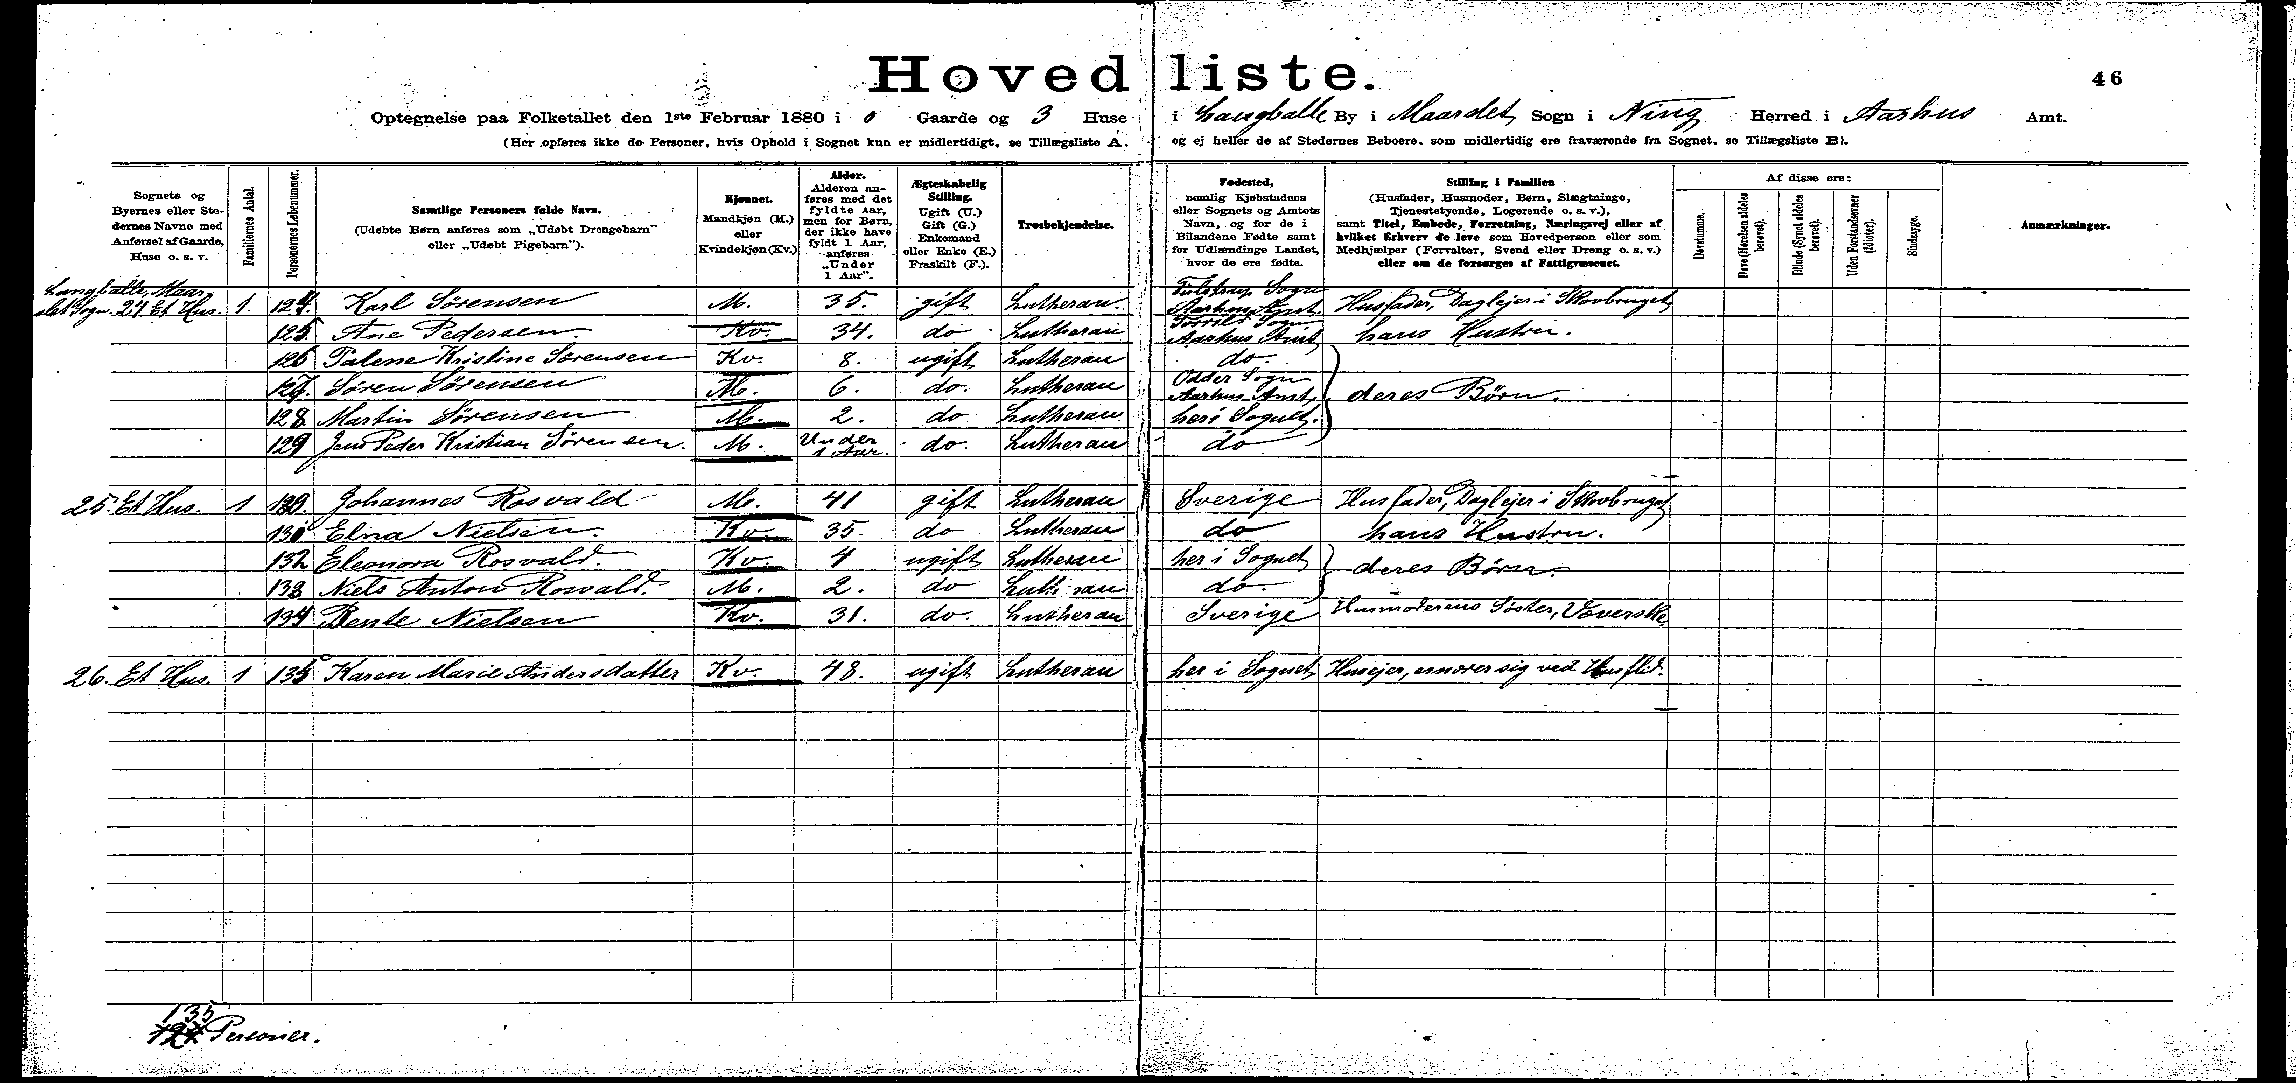 Hovedliste.
46
Optegnelse paa Folketallet den 1ste Februar 1880 i 0 Gaarde og 3 Huse i Langballe By i Maarslet Sogn i Ning Herred i Aarhus Amt.
(Her opføres ikke de Personer, hvis Ophold i Sognet kun er midlertidigt, se Tillægsliste A. og ej heller de af Stedernes Beboere, som midlertidig ere fraværende fra Sognet, se Tillægsliste B).
Sognets og Byernes eller Stedernes Navne med Anførsel af Gaarde, Huse o. s. v.
Familiernes Antal.
Personernes Løbenummer.
Samtlige Personers fulde Navn.
(Udøbte Børn anføres som „Udøbt Drengebarn" eller „Udøbt Pigebarn").
Kjønnet.
Mandkjøn (M.) eller Kvindekjøn (Kv.)
Alder.
Alderen anføres med det fyldte Aar, men for Børn, der ikke have fyldt 1 Aar, anføres „Under 1 Aar".
Ægteskabelig Stilling.
Ugift (U.) Gift (G.) Enkemand eller Enke (E.) Fraskilt (F.).
Trosbekjendelse.
Fødested,
nemlig Kjøbstadens eller Sognets og Amtets Navn, og for de i Bilandene Fødte samt for Udlændinge Landet, hvor de ere fødte.
Stilling i Familien
(Husfader, Husmoder, Børn, Slægtninge, Tjenestetyende, Logerende o. s. v.),
samt Titel, Embede, Forretning, Næringsvej eller af hvilket Erhverv de leve som Hovedperson eller som Medhjælper (Forvalter, Svend eller Dreng o. s. v.) eller om de forsørges af Fattigvæsenet.
Af disse ere:
Døvstumme.
Døve (Hørelsen aldeles berøvet).
Blinde (Synet aldeles berøvet).
Uden Forstandsevner (Idioter).
Sindssyge.
Anmærkninger.
Langballe, Maarslet Sogn. 24. Et Hus. 1. 124. Karl Sørensen M. 35. gift Lutheran. Sogn Aarhus Amt. Husfader, Daglejer i Skovbruget
125. Ane Pedersen Kv. 34. do Lutheran Sogn Aarhus Amt hans Hustru.
126 Kristine Sørensen Kv. 8. ugift Lutheran do.
127. Søren Sørensen M. 6. do. Lutheran Odder Sogn Aarhus Amt, deres Børn.
128 Martin Sørensen M. 2. do Lutheran her i Sognet.
129 Jens Peder Kristian Sørensen. M. Under 1 Aar. do. Lutheran do
25. Et Hus. 1 130. Johannes Rosvald M. 41 gift Lutheran Sverige Husfader, Daglejer i Skovbruget
131 Elna Nielsen. Kv. 35. do Lutheran do hans Hustru.
132 Eleonora Rosvald. Kv. 4 ugift Lutheran her i Sognet deres Børn.
133 Niels Anton Rosvald. M. 2. do Lutheran do.
134 Bente Nielsen Kv. 31. do. Lutheran Sverige Husmoderens Søster, Væverske
26. Et Hus. 1 135 Karen Marie Andersdatter Kv. 48. ugift Lutheran her i Sognet Husejer, ernærer sig ved Husflid.
135
124 Personer.